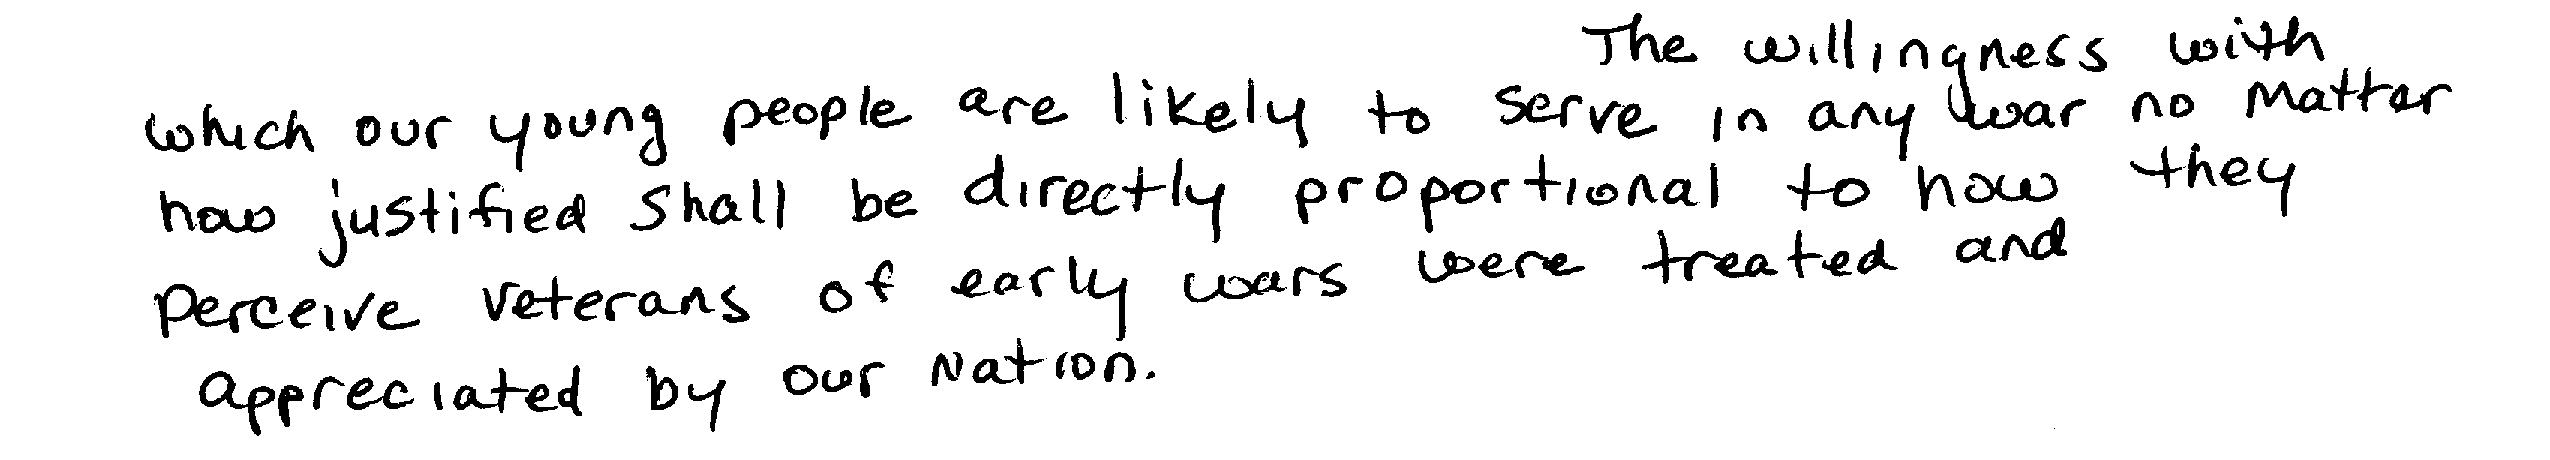 The willingness with
which our young people are likely to serve in any war no matter
how justified shall be directly proportional to how they
perceive veterans of early wars were treated and
appreciated by our Nation.